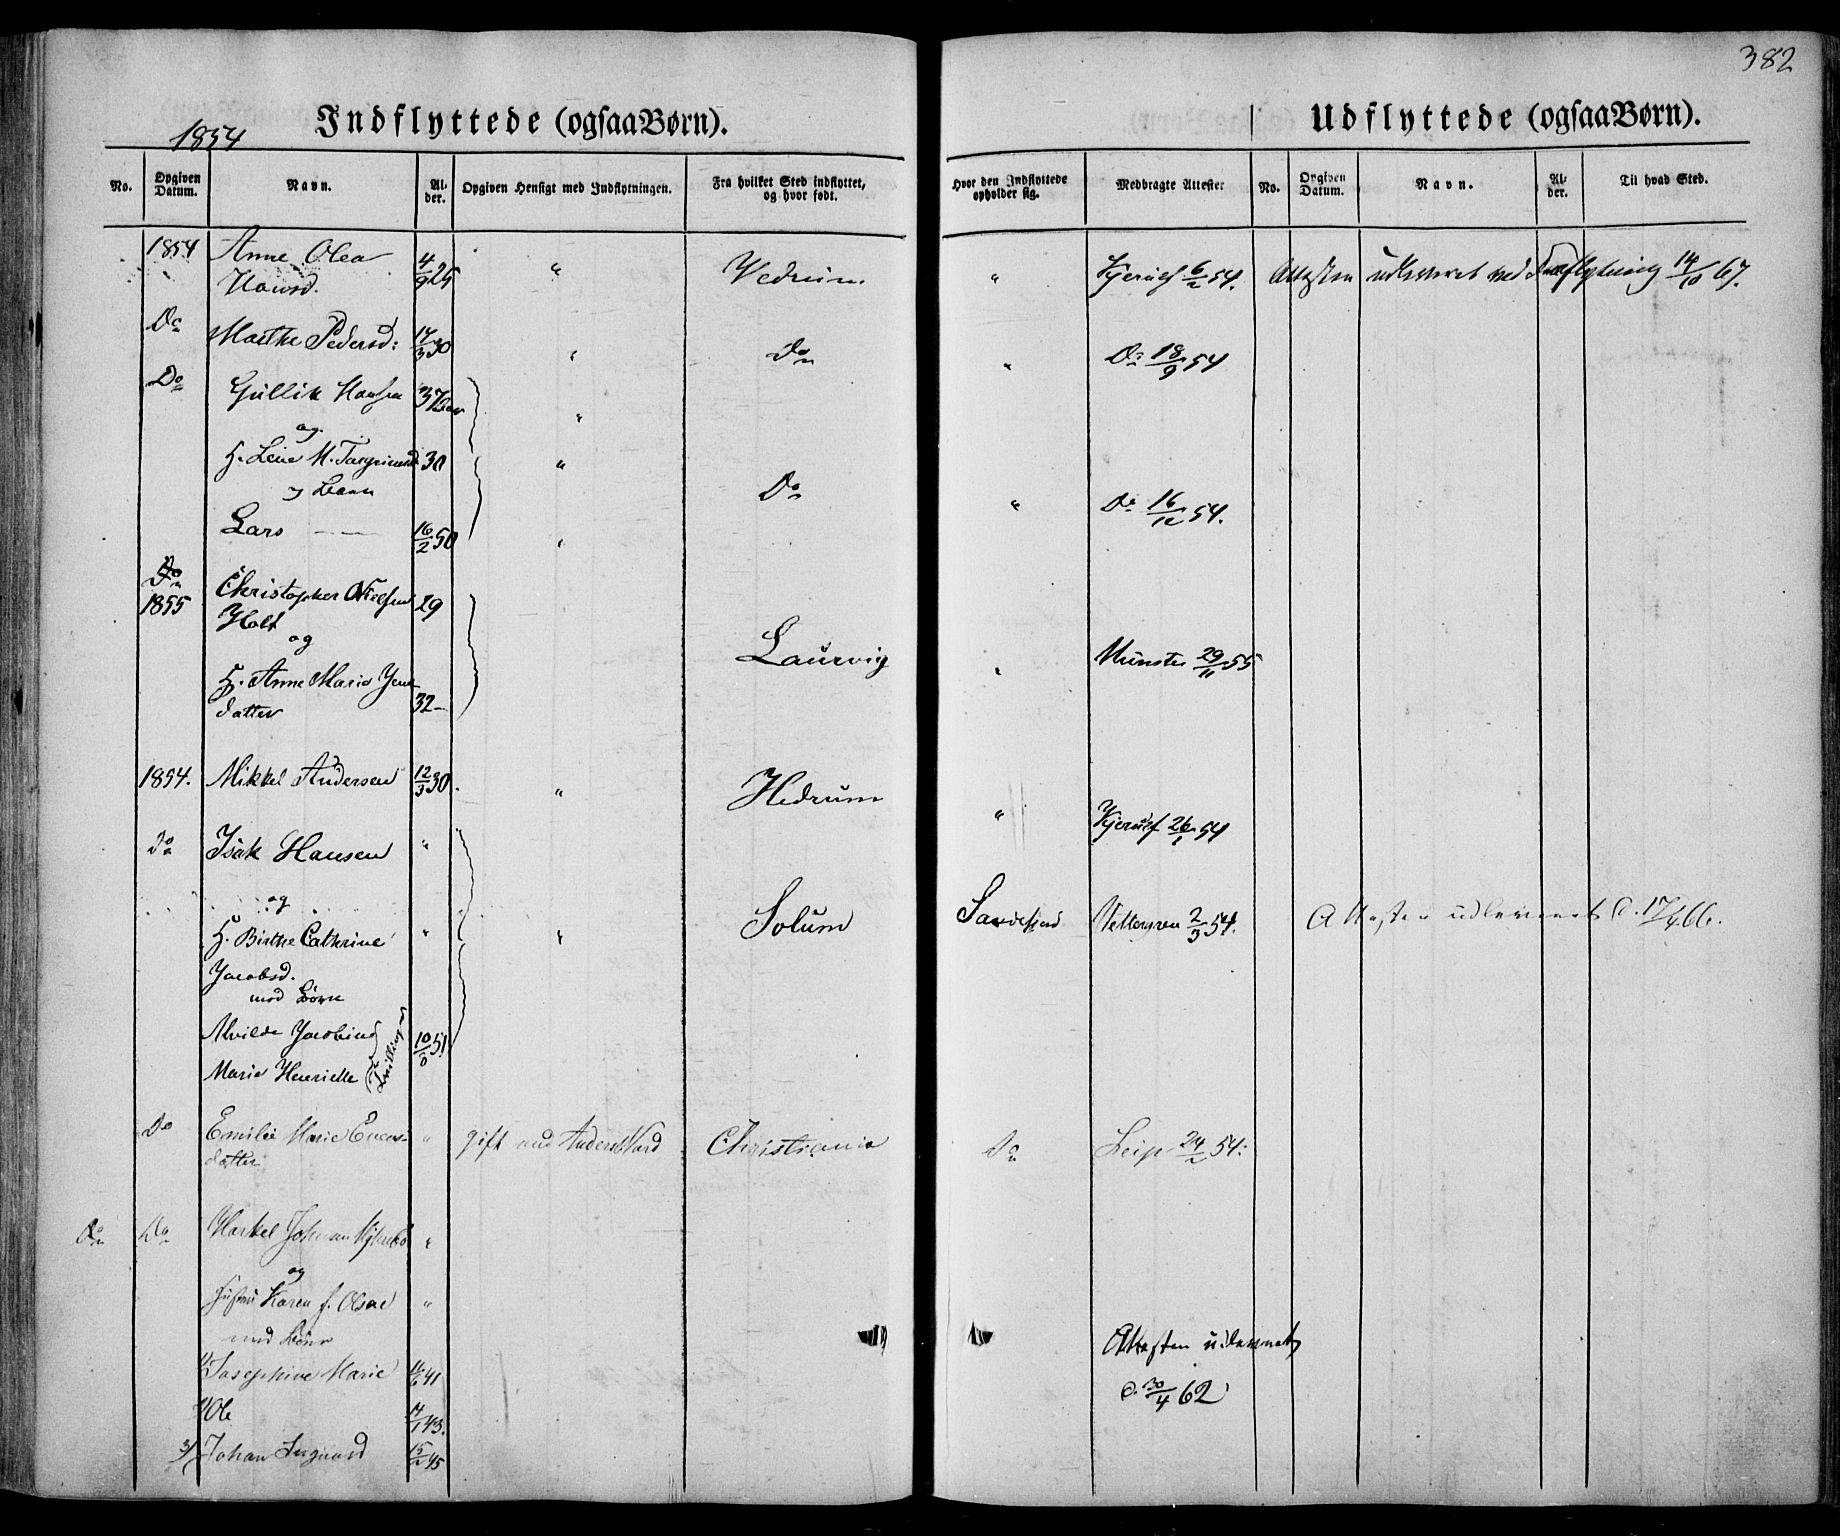 382
1854
Indflyttede (ogsaa Børn).
Udflyttede (ogsaa Børn).
No. Opgiven Datum. Navn. Alder. Opgiven Hensigt med Indflytningen. Fra hvilket Sted indflyttet, og hvor født. Hvor den Indflyttede opholder sig. Medbragte Attester No. Opgiven Datum. Navn. Alder. Til hvad Sted.
1854 Anne Olea 4/9 25 " " Kjerulf 6/2 54. Attesten udleveret ved 14/10 67.
Hansd.
Do Marthe Pedersd: 17/3 30 " Do " Do 18/9 54
Do Gullik Hansen 37 "
og
H. Lene M. 30 " Do " Do 16/12 54.
og Barn
Lars 16/2 50 "
Do
1855 Christopher Nielsen 29
Holt
og
Laurvig " Munster 29/11 55
H. Anne Marie Jens
datter 32
1854. Mikkel Andersen 12/3 30. " Hedrum " Kjerulf 26/1 54
Do Isak Hansen "
og
H. Birthe Cathrine " " Solum Sandefjord 2/3 54. Attesten udleveret d. 17/4 66.
Jacobsd.
med Børn
Alvilde Jacobine
Marie Henriette Tvillinger 10/8 51
Do Emilie Marie " gift med Anders Christiania Do 24/2 54.
datter
Do Do Johan "
og
Hustru Karen f. Olsen "
med Børn
1) Josephine Marie 41
2) Ole 43.
3) Johan 45
Attesten udleveret
d. 30/4 62